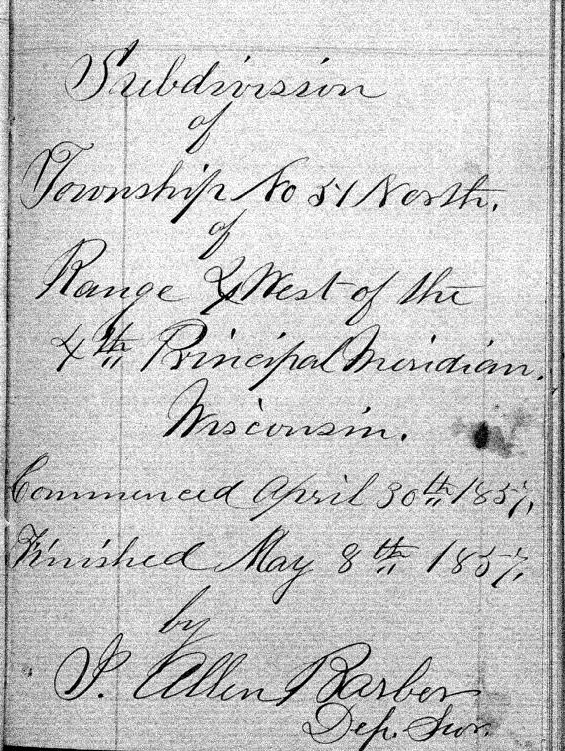 Subdivision
of
Township No 51 North.
of
Range 4 West of the
4th Principal Meridian.
Wisconsin.
Commenced April 30th 1857.
Finished May 8th 1857.
by
J. Allen Barber
Dep. Sur.